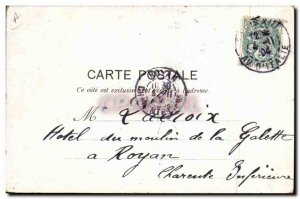 CARTE POSTALE
Ce côté est exclusivement réservé à l'adresse.
M Lacroix
Hotel du moulin de la Galette
a Royan
Charente Inférieure